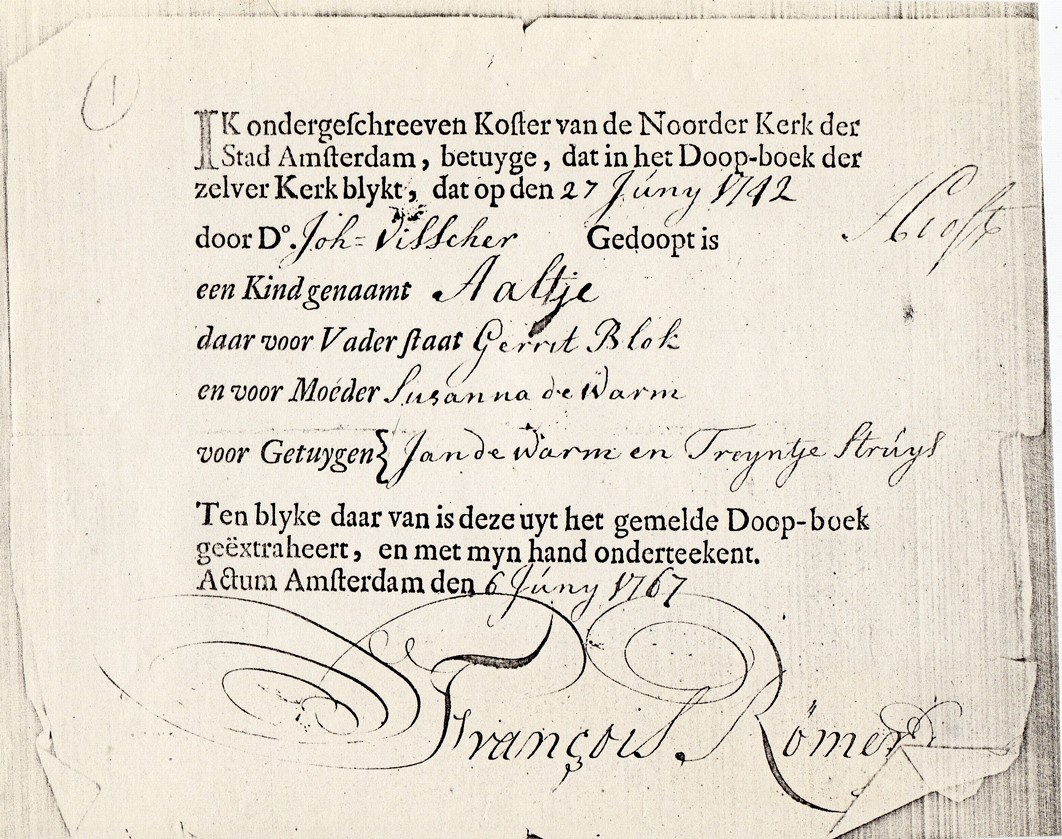 1
IK ondergeſchreeven Koſter van de Noorder Kerk der
Stad Amſterdam, betuyge, dat in het Doop-boek der
zelver Kerk blykt, dat op den 27 Júny 1742
door Do. Joh= Visscher Gedoopt is
een Kind genaamt Aaltje
daar voor Vader ſtaat Gerrit Blok
en voor Moéder Susanna de Warm
voor Getuygen { Jan de Warm en Treyntje Strúys
Ten blyke daar van is deze uyt het gemelde Doop-boek
geëxtraheert, en met myn hand onderteekent.
Actum Amſterdam den 6 Júny 1767
François Römer